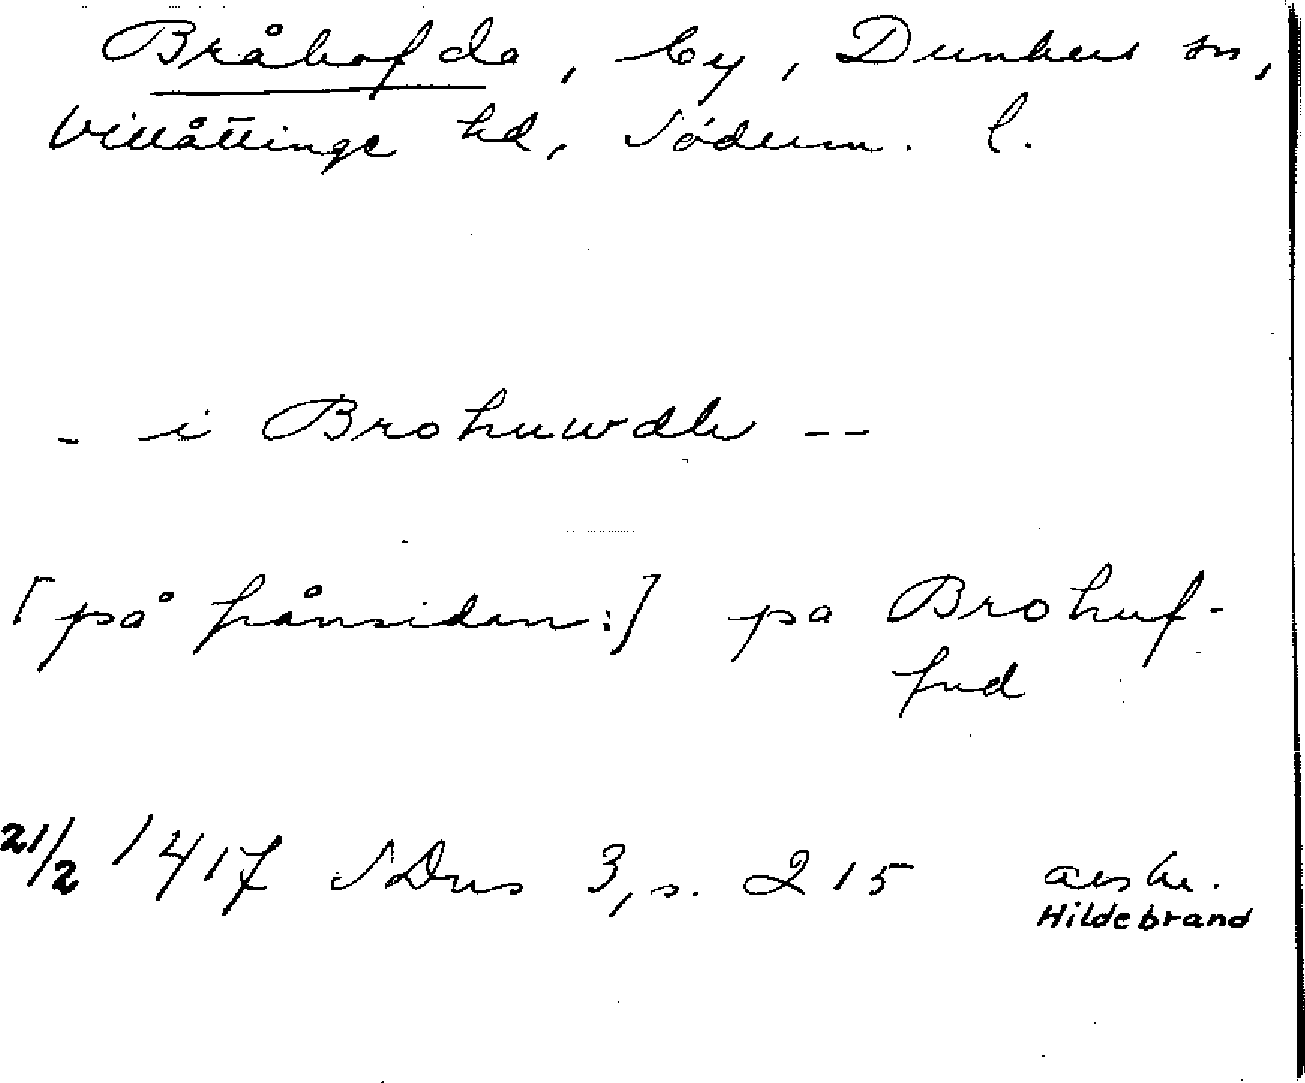 Bråhofda, by, Dunkers sn,
Villåttinge hd, Söderm. l.
- - i Brohuwdh - -
[på frånsidan:] pa Brohuf-
fud
21/2 1417 SDns 3, s. 215 avskr.
Hildebrand